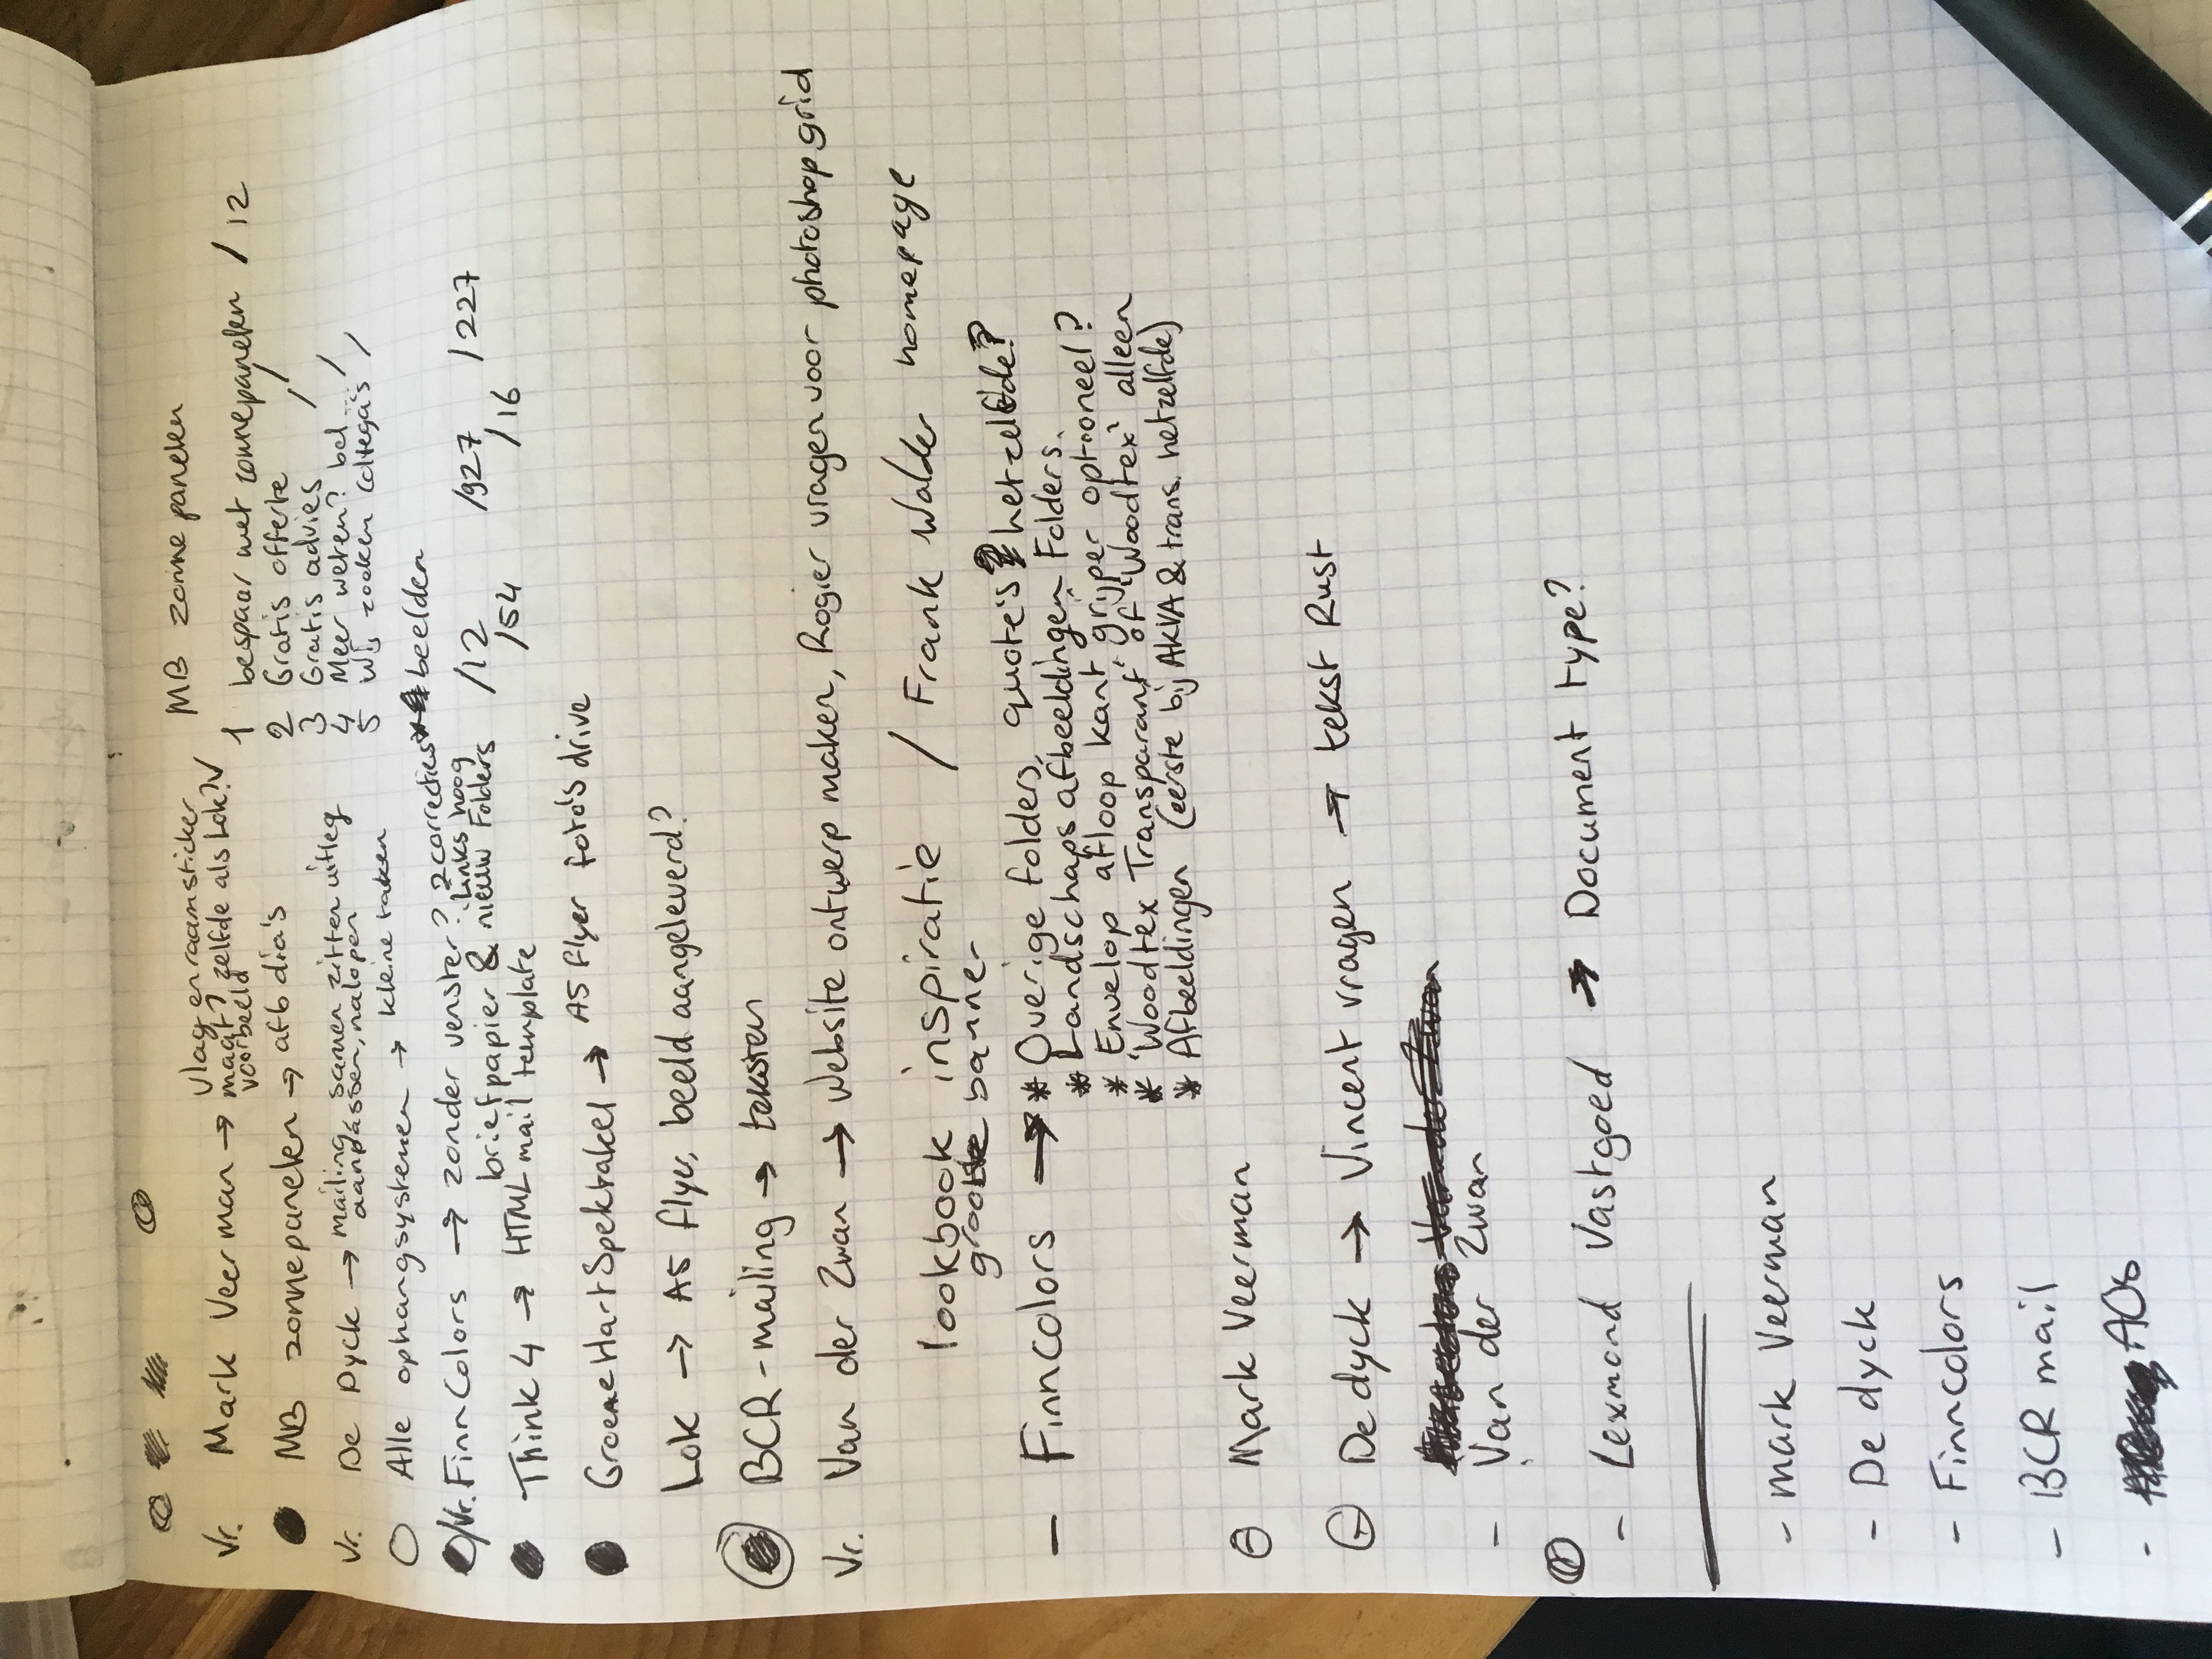 MB zonne panelen
Vr. Mark Veerman → Vlag en raamsticker
maat? zelfde als Lok?
voorbeeld
1 bespaar met zonnepanelen / 12
2 Gratis offerte /
3 Gratis advies /
4 Meer weten? bel... /
5 wij zoeken collega's /
MB zonnepanelen → afb dia's
Vr. De Dyck → mailing samen zitten uitleg
aanpassen, nalopen
Alle ophangsystemen → kleine taken
/Vr. FinnColors → zonder venster? 2 correcties beelden
links hoog
briefpapier & nieuw Folders /12 /927 /1227
/54 /16
Think 4 → HTML mail template
Groene Hart Spektakel → A5 flyer foto's drive
Lok → A5 flyer, beeld aangeleverd?
BCR-mailing → teksten
Vr. Van der Zwan → website ontwerp maken, Rogier vragen voor photoshop grid
lookbook inspiratie / Frank Walder homepage
grote banner
- Finncolors → * Overige folders, quote's hetzelfde?
* Landschaps afbeeldingen Folders.
* Envelop afloop kant grijper optioneel?
* 'Woodtex Transparant' of 'Woodtex' alleen
* Afbeeldingen (eerste bij AKVA & trans. hetzelfde)
Mark Veerman
De dyck → Vincent vragen → tekst Rust
- Van der Zwan
- Lexmond Vastgoed → Document type?
- mark Veerman
- De dyck
- Finncolors
- BCR mail
-